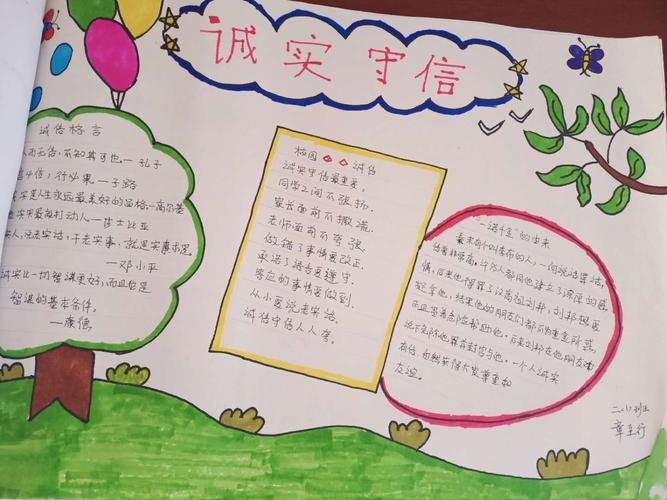 诚实守信
诚信格言
人而无信,不知其可也。—孔子
言必信,行必果。—子路
诚实是人生永远最美好的品格。—高尔基
老实最能打动人—莎士比亚
实人,说老实话,干老实事,就是实事求是。
—邓小平
诚实比一切智谋更好,而且它是
智谋的基本条件。
—康德
校园 诚信
诚实守信最重要,
同学之间不张扬.
家长面前不撒谎.
老师面前不夸张
做错了事情要改正.
承诺了诺言要遵守.
答应的事情要做到.
从小要说老实话.
诚信守信人人夸。
"一诺千金"的由来
秦末有个叫季布的人,一向说话算话,
信誉非常高,许多人都同他建立了深厚的感
情,后来他得罪了汉高祖刘邦,刘邦悬赏
捉拿他,结果他的朋友们都不惧重金所惑,
而且冒着危险帮助他,后来刘邦在他朋友的
说下免除他罪并封官与他。一个人诚实
有信,也能获得大家尊重和
友谊。
二(1)班
章至行